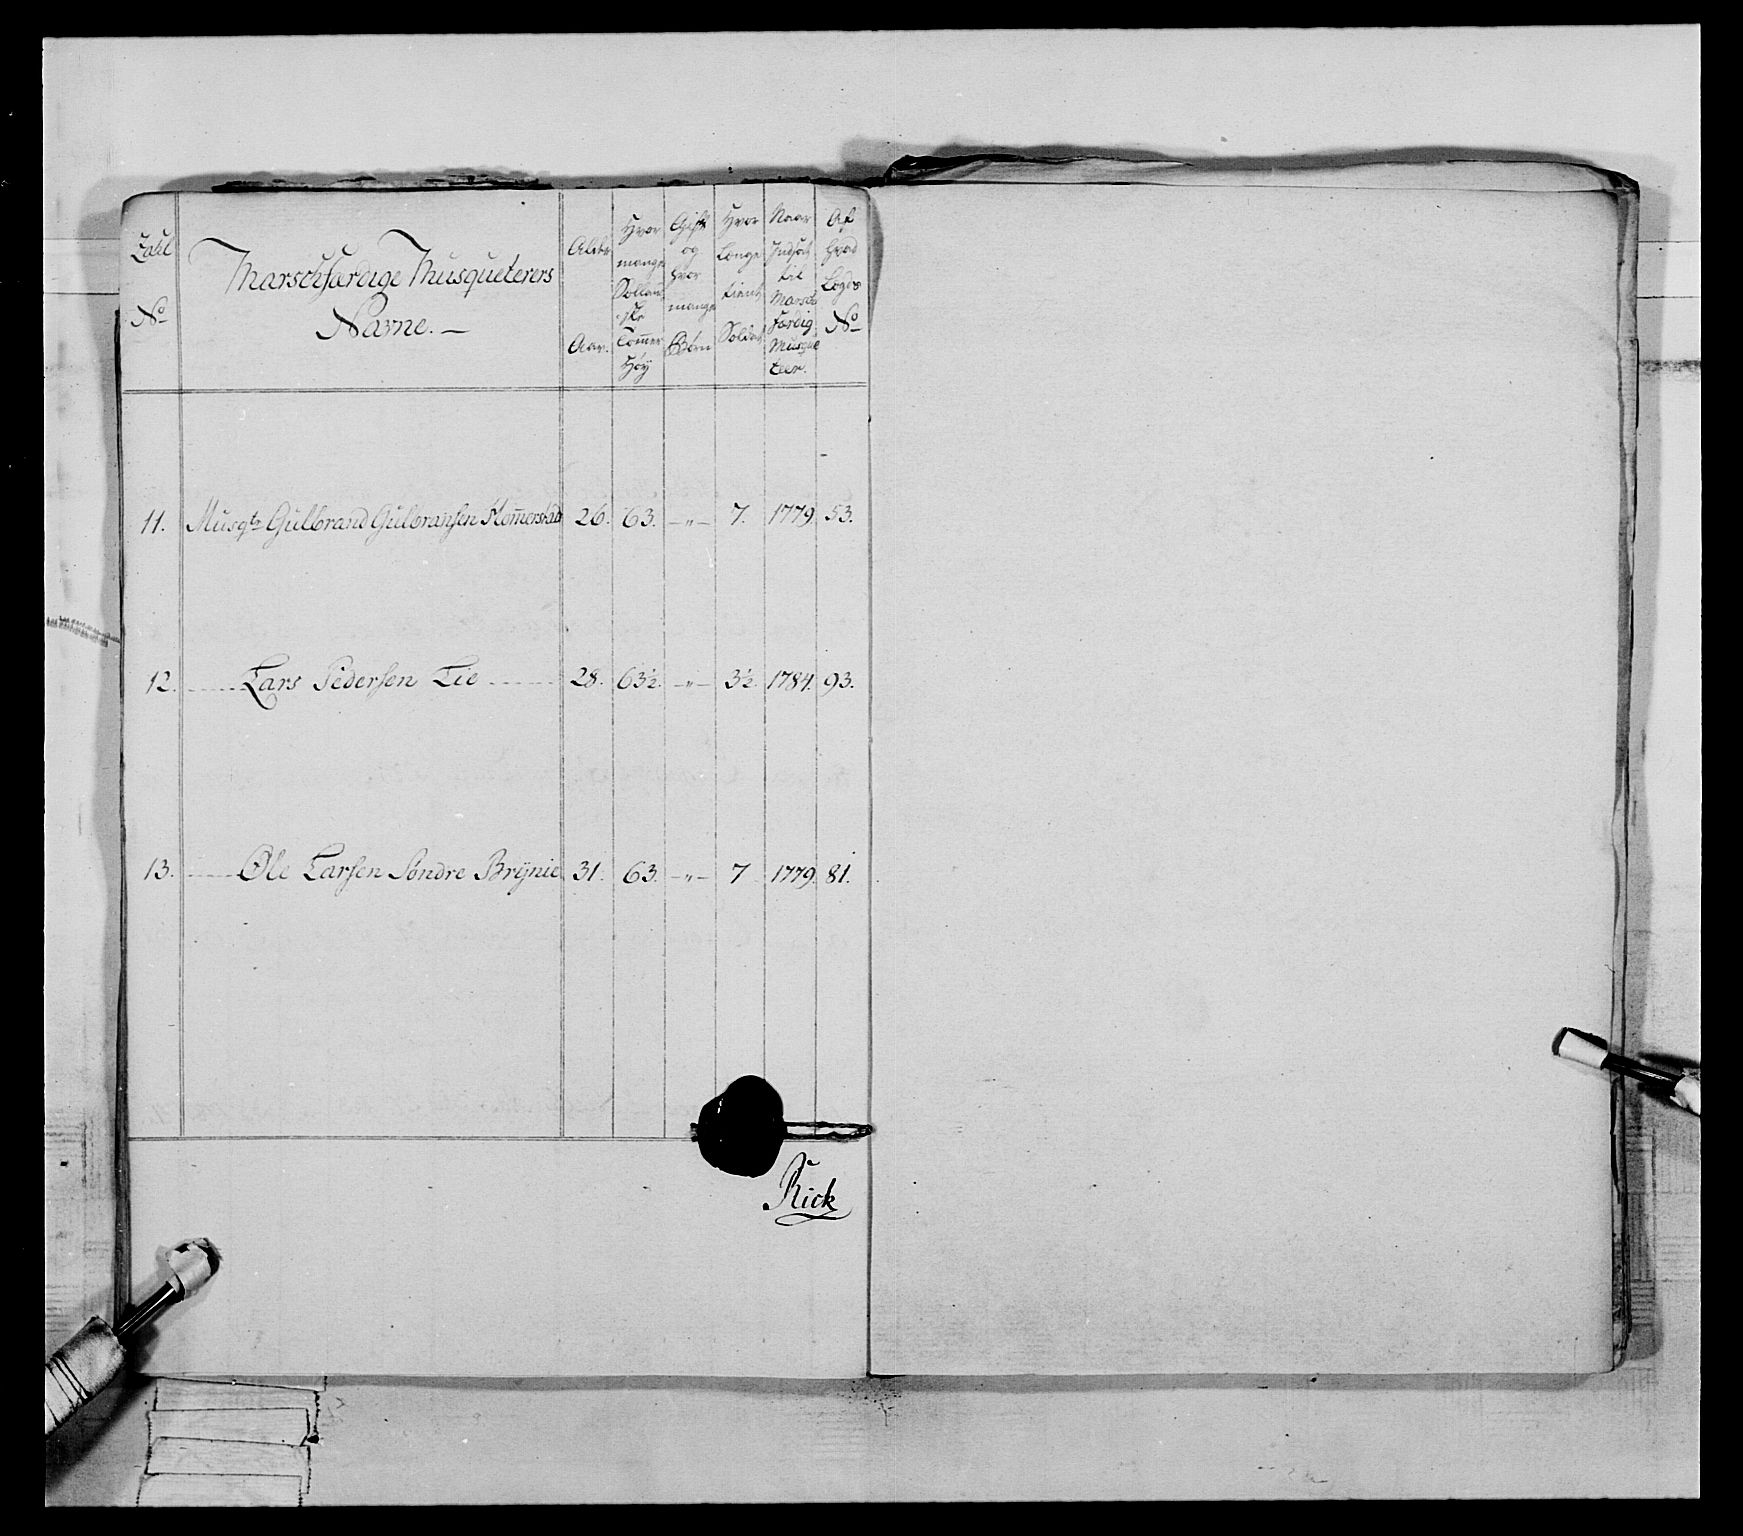 Zahl No
Marschfærdige Musqueterers
Navne. —
Alder Aar.
Hvor mange Sollandske Tom̄er Høy
Gift og hvor mange Børn
Hvor Længe tient Soldat
Naar Indsat til Marsch færdig Musqueteer.
Af hvad Lægds No
11. Musqtr Gulbrand Gulbransen Kom̄erstad 26. 63. —„— 7. 1779. 53.
12. Lars Pedersen Lie 28. 63½. —„— 3½. 1784. 93.
13. Ole Larsen Søndre Brÿnie 31. 63. —„— 7 1779. 81.
Rick